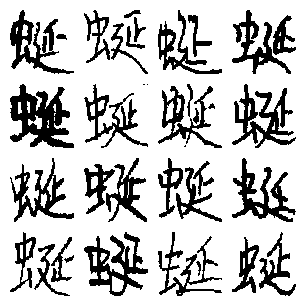 蜒蜒蜒蜒
蜒蜒蜒蜒
蜒蜒蜒蜒
蜒蜒蜒蜒